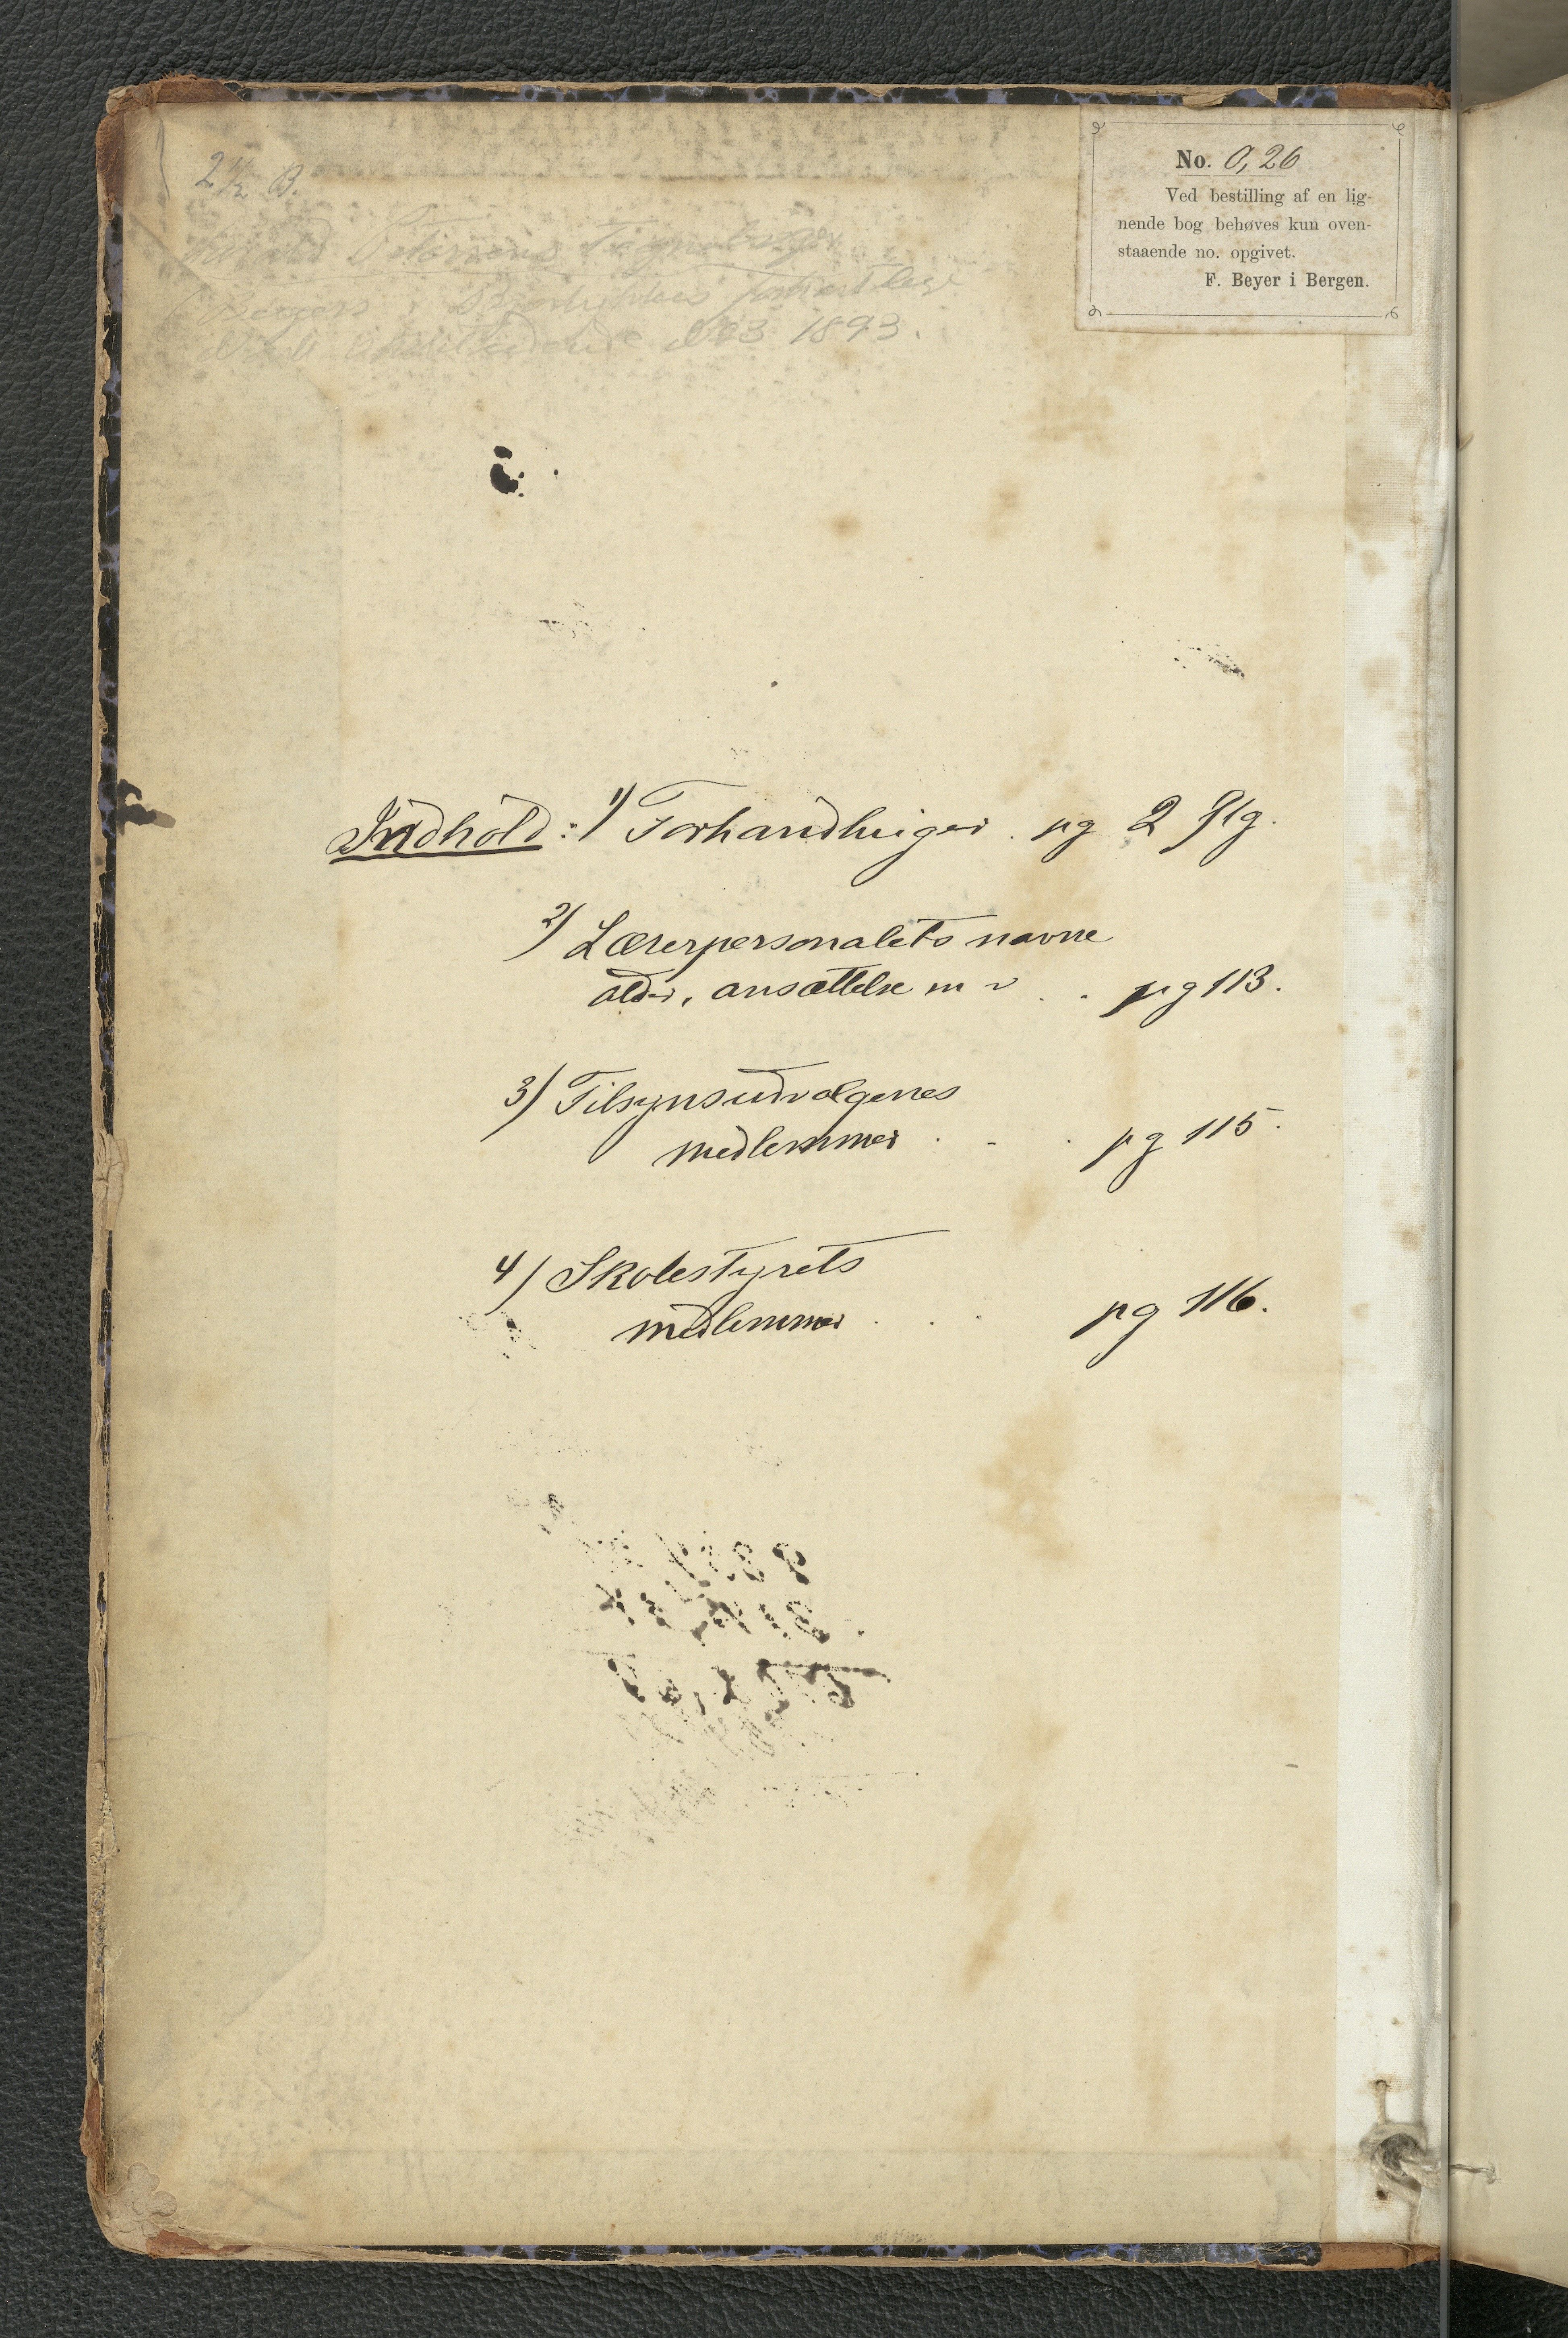 2 1/2 B.
No. 0,26
Ved bestilling af en lig-
nende bog behøves kun oven-
staaende no. opgivet.
F. Beyer i Bergen.
Tegnebøger
Bergen
1893.
Indhold: 1) Forhandlinger . pg 2 flg.
2) Lærerpersonalets navne
alder, ansættelse m v . . pg 113.
3) Tilsynsudvalgenes
medlemmer . . . pg 115.
4) Skolestyrets
medlemmer . . . pg 116.